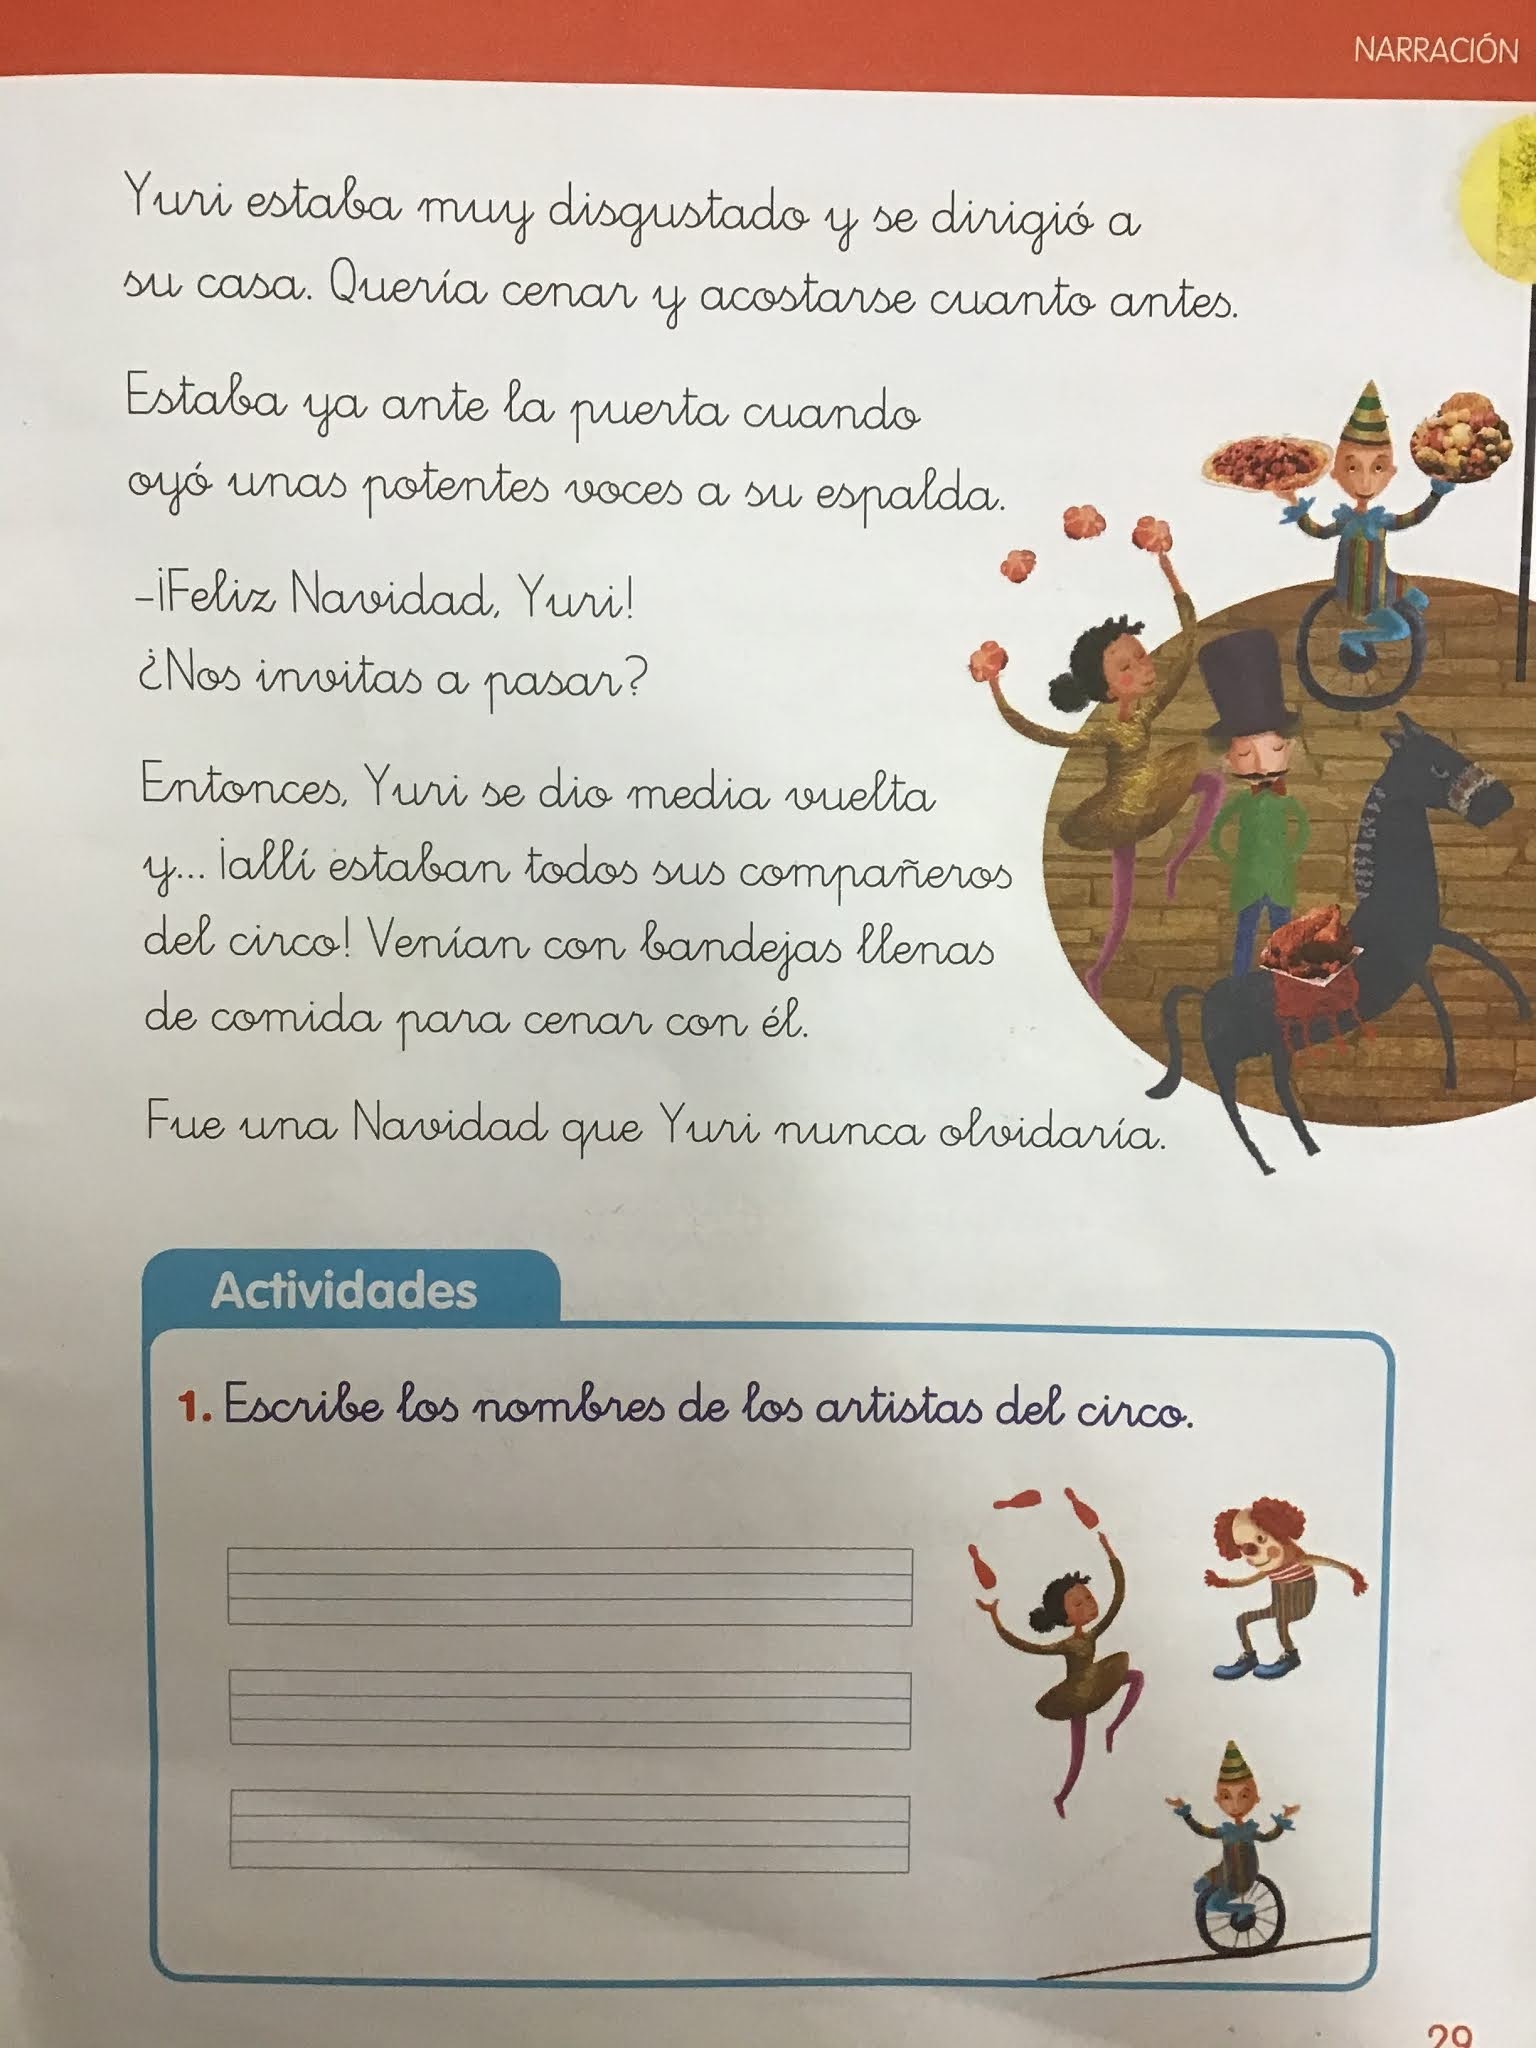 NARRACIÓN
Yuri estaba muy disgustado y se dirigió a
su casa. Quería cenar y acostarse cuanto antes.
Estaba ya ante la puerta cuando
oyó unas potentes voces a su espalda.
–¡Feliz Navidad, Yuri!
¿Nos invitas a pasar?
Entonces, Yuri se dio media vuelta
y... ¡allí estaban todos sus compañeros
del circo! Venían con bandejas llenas
de comida para cenar con él.
Fue una Navidad que Yuri nunca olvidaría.
Actividades
1. Escribe los nombres de los artistas del circo.
29